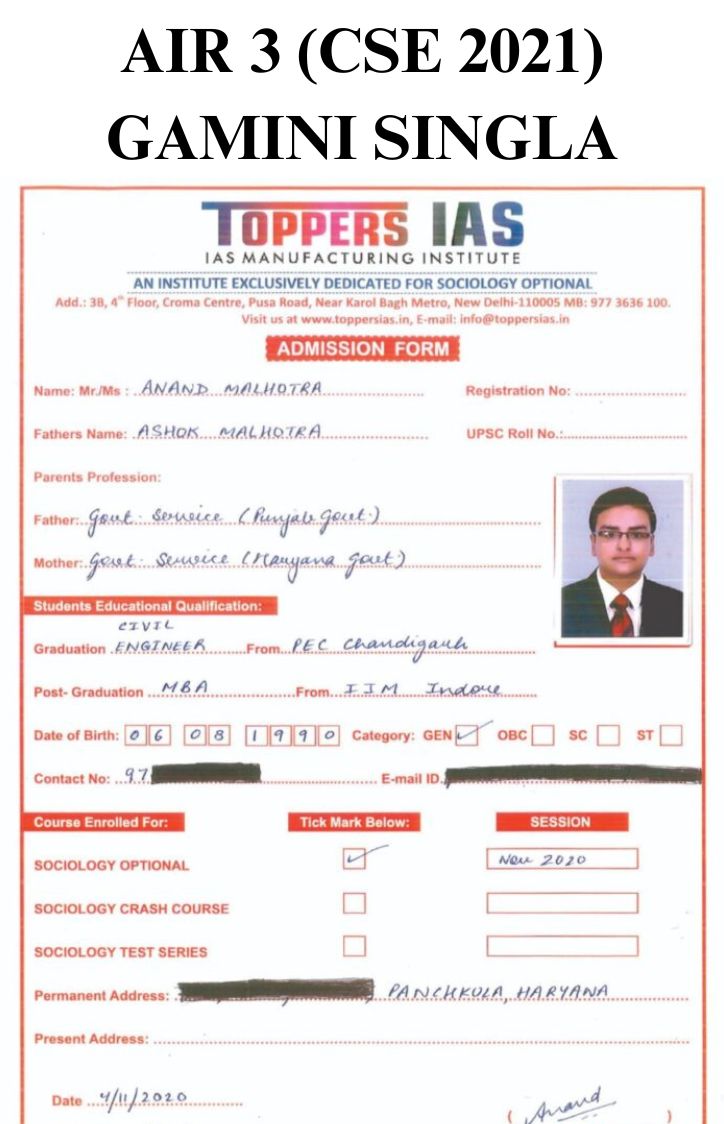 AIR 3 (CSE 2021)
GAMINI SINGLA
TOPPERS IAS
IAS MANUFACTURING INSTITUTE
AN INSTITUTE EXCLUSIVELY DEDICATED FOR SOCIOLOGY OPTIONAL
Add.: 3B, 4th Floor, Croma Centre, Pusa Road, Near Karol Bagh Metro, New Delhi-110005 MB: 977 3636 100.
Visit us at www.toppersias.in, E-mail: info@toppersias.in
ADMISSION FORM
Name: Mr./Ms : ANAND MALHOTRA Registration No:
Fathers Name: ASHOK MALHOTRA UPSC Roll No.:
Parents Profession:
Father: Govt. Service (Punjab Govt.)
Mother: Govt. Service (Haryana Govt)
Students Educational Qualification:
CIVIL
Graduation ENGINEER From PEC Chandigarh
Post- Graduation MBA From IIM Indore
Date of Birth: 06 08 1990 Category: GEN ✓ OBC SC ST
Contact No: 97 E-mail ID
Course Enrolled For: Tick Mark Below: SESSION
SOCIOLOGY OPTIONAL ✓ Nov 2020
SOCIOLOGY CRASH COURSE
SOCIOLOGY TEST SERIES
Permanent Address: PANCHKULA, HARYANA
Present Address:
Date 4/11/2020
( Anand )